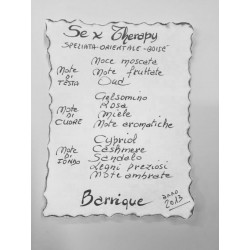 Sex Therapy
SPEZIATA-ORIENTALE-BOISÉ
NOTE DI TESTA
Noce moscata
Note fruttate
Oud
NOTE DI CUORE
Gelsomino
Rosa
Miele
Note aromatiche
NOTE DI FONDO
Cypriol
Cashmere
Sandalo
Legni preziosi
Note ambrate
Barrique
anno 2013